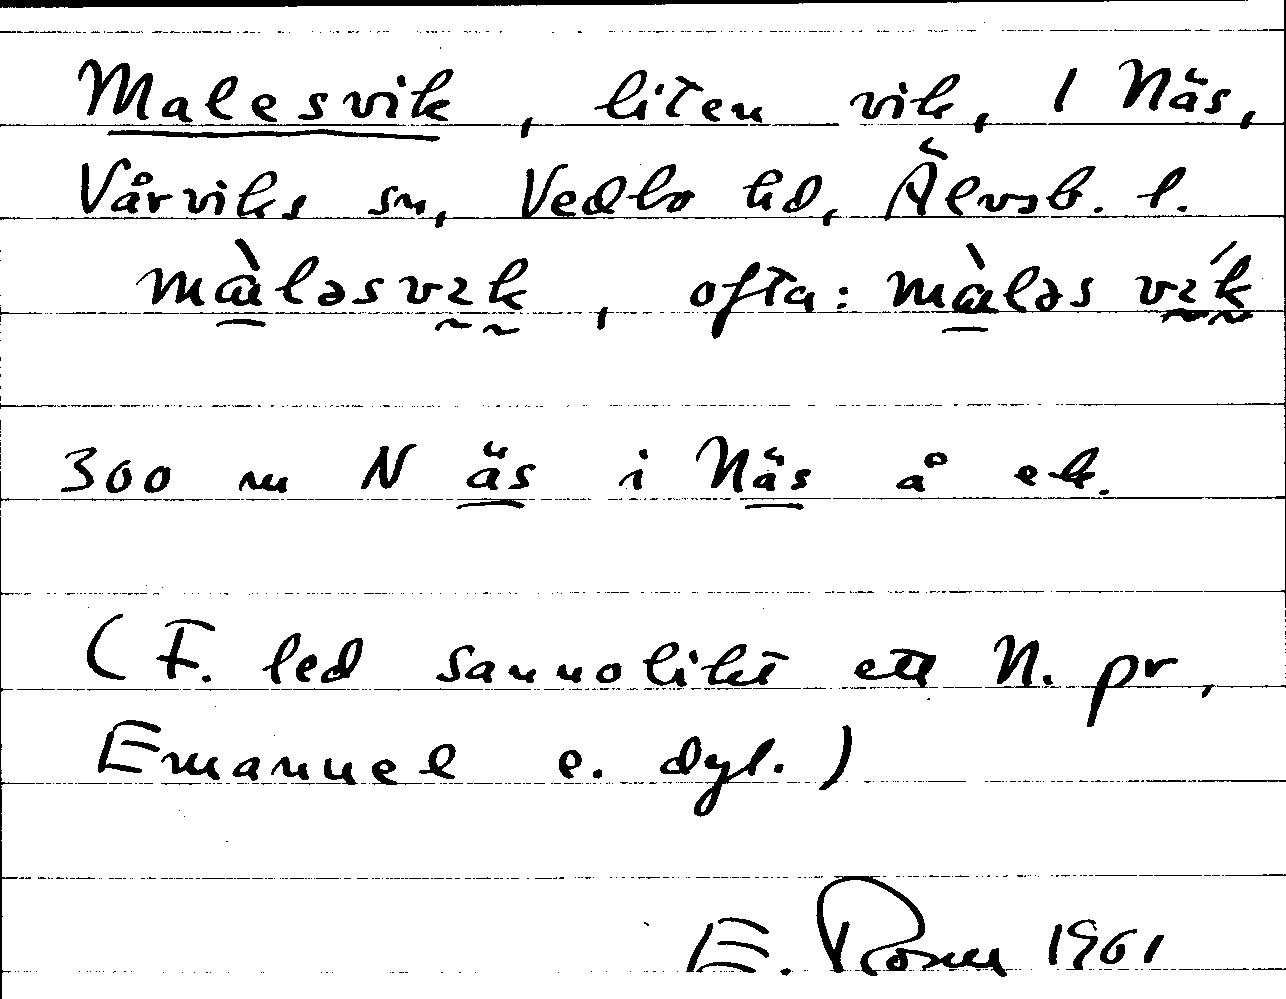 Malesvik, liten vik, 1 Näs,
Vårviks sn, Vedbo hd, Älvsb. l.
màləsvık, ofta: màləs vík
300 m N äs i Näs å ek.
(F. led sannolikt ett N. pr,
Emanuel e. dyl.)
E. Rosen 1961